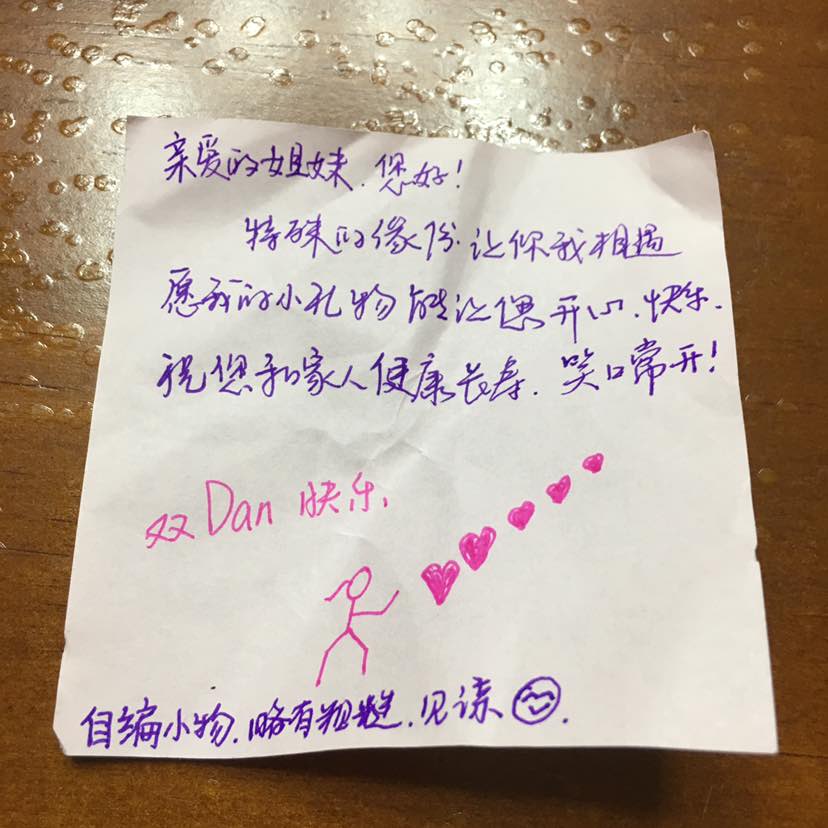 亲爱的姐妹、您好!
特殊的缘份.让你我相遇
愿我的小礼物能让您开心、快乐.
祝您和家人健康长寿.笑口常开!
双Dan快乐、
自编小物.略有粗糙.见谅